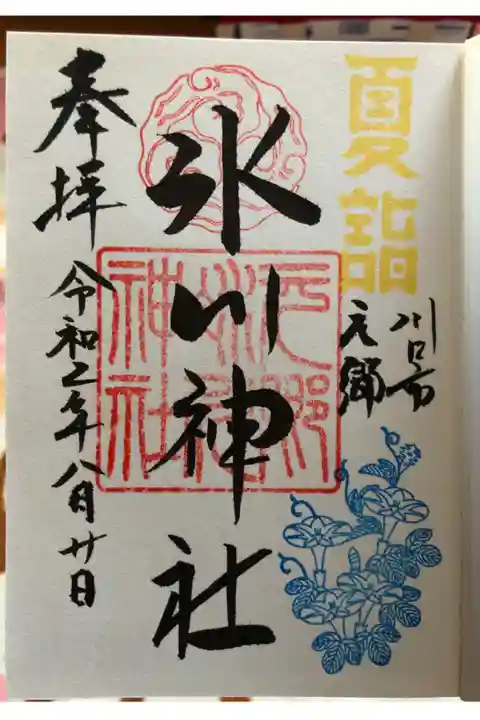 夏詣
川口市
元郷
氷川神社
元郷氷川神社
奉拝
令和二年八月廿日